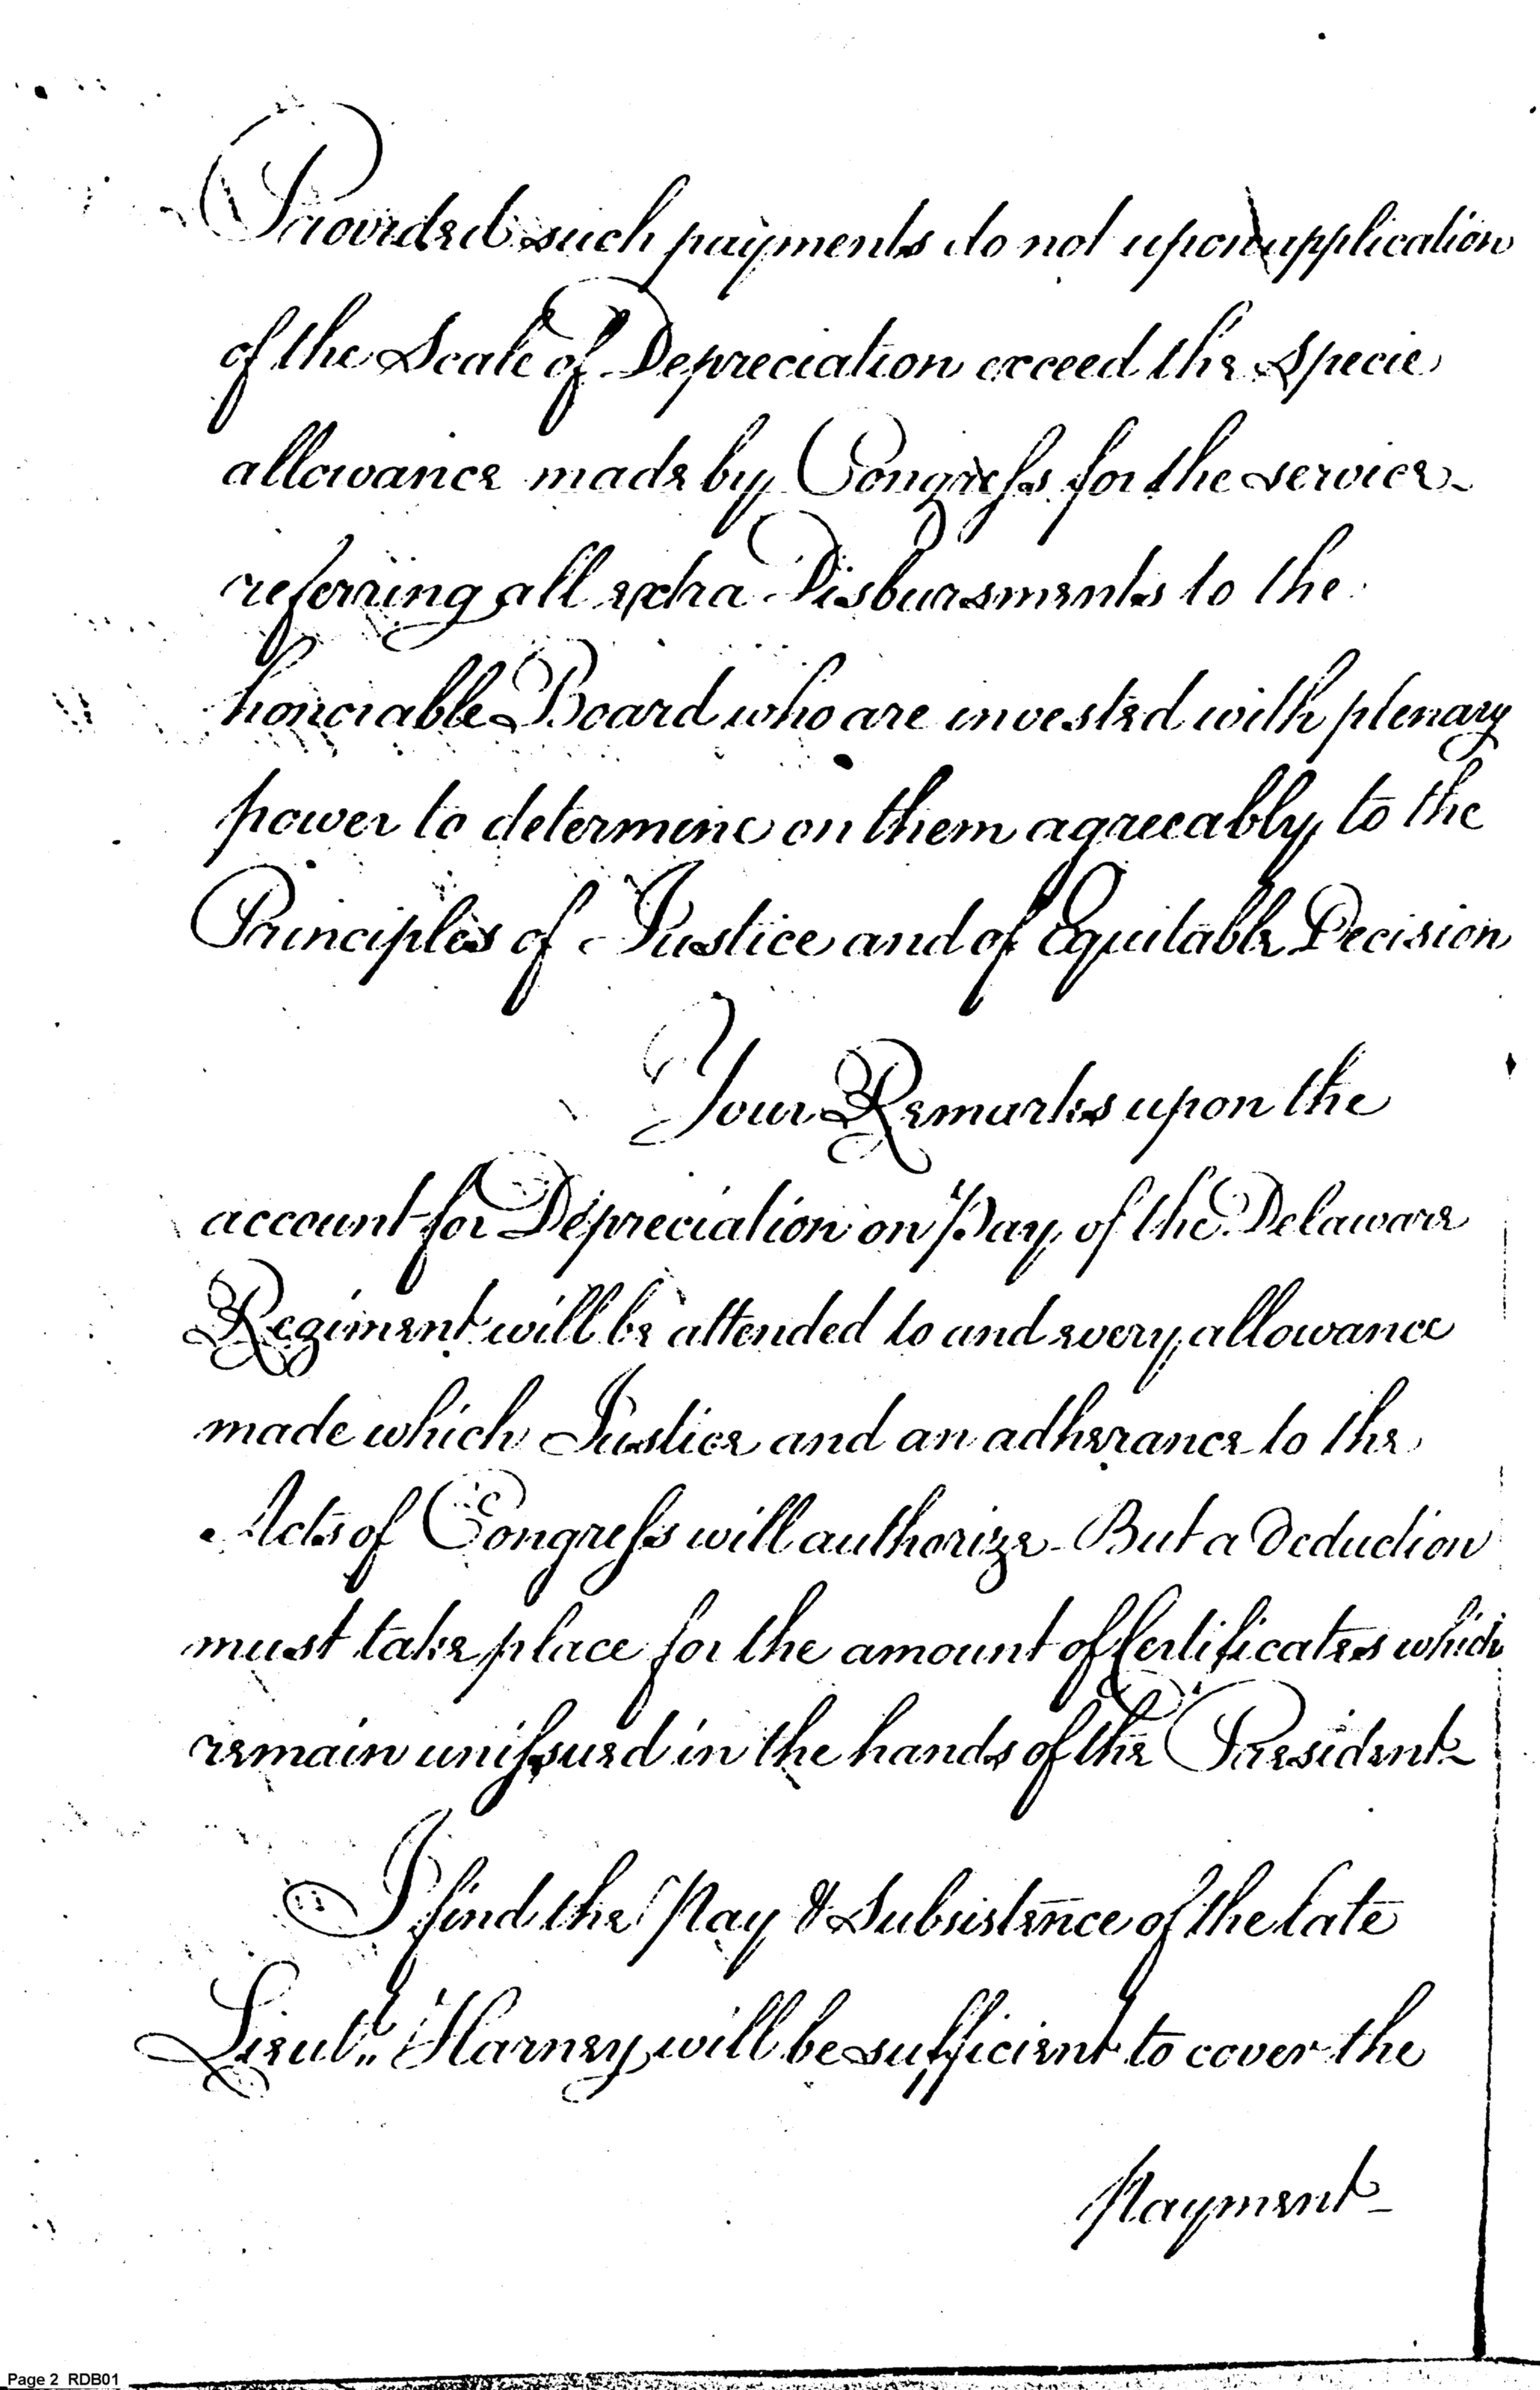 Provided such payments do not upon application
of the Scale of Depreciation exceed the Specie
allowance made by Congress for the service-
referring all extra Disbursments to the
honorable Board who are invested with plenary
power to determine on them agreeably to the
Principles of Justice and of Equitable Decision
Your Remarks upon the
account for Depreciation on Pay of the Delaware
Regiment will be attended to and every allowance
made which Justice and an adherance to the
Acts of Congress will authorize - But a Deduction
must take place for the amount of Certificates which
remain unissued in the hands of the President-
I find the Pay & Subsistence of the late
Lieut. Harney will be sufficient to cover the
Payment-
Page 2 RDB01